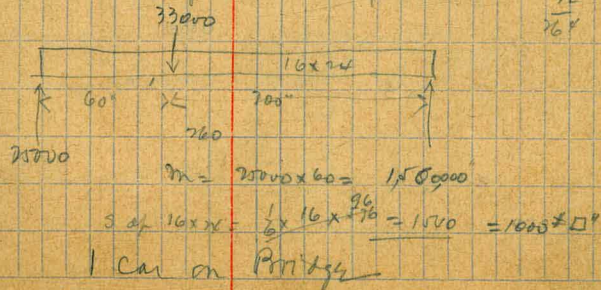 33000
16 x 24
60" 200"
260
25000
M = 25000 x 60 = 1,500,000
S of 16 x 24 = 1/6 x 16 x 576 = 1500 = 1000# □"
1 Car on Bridge